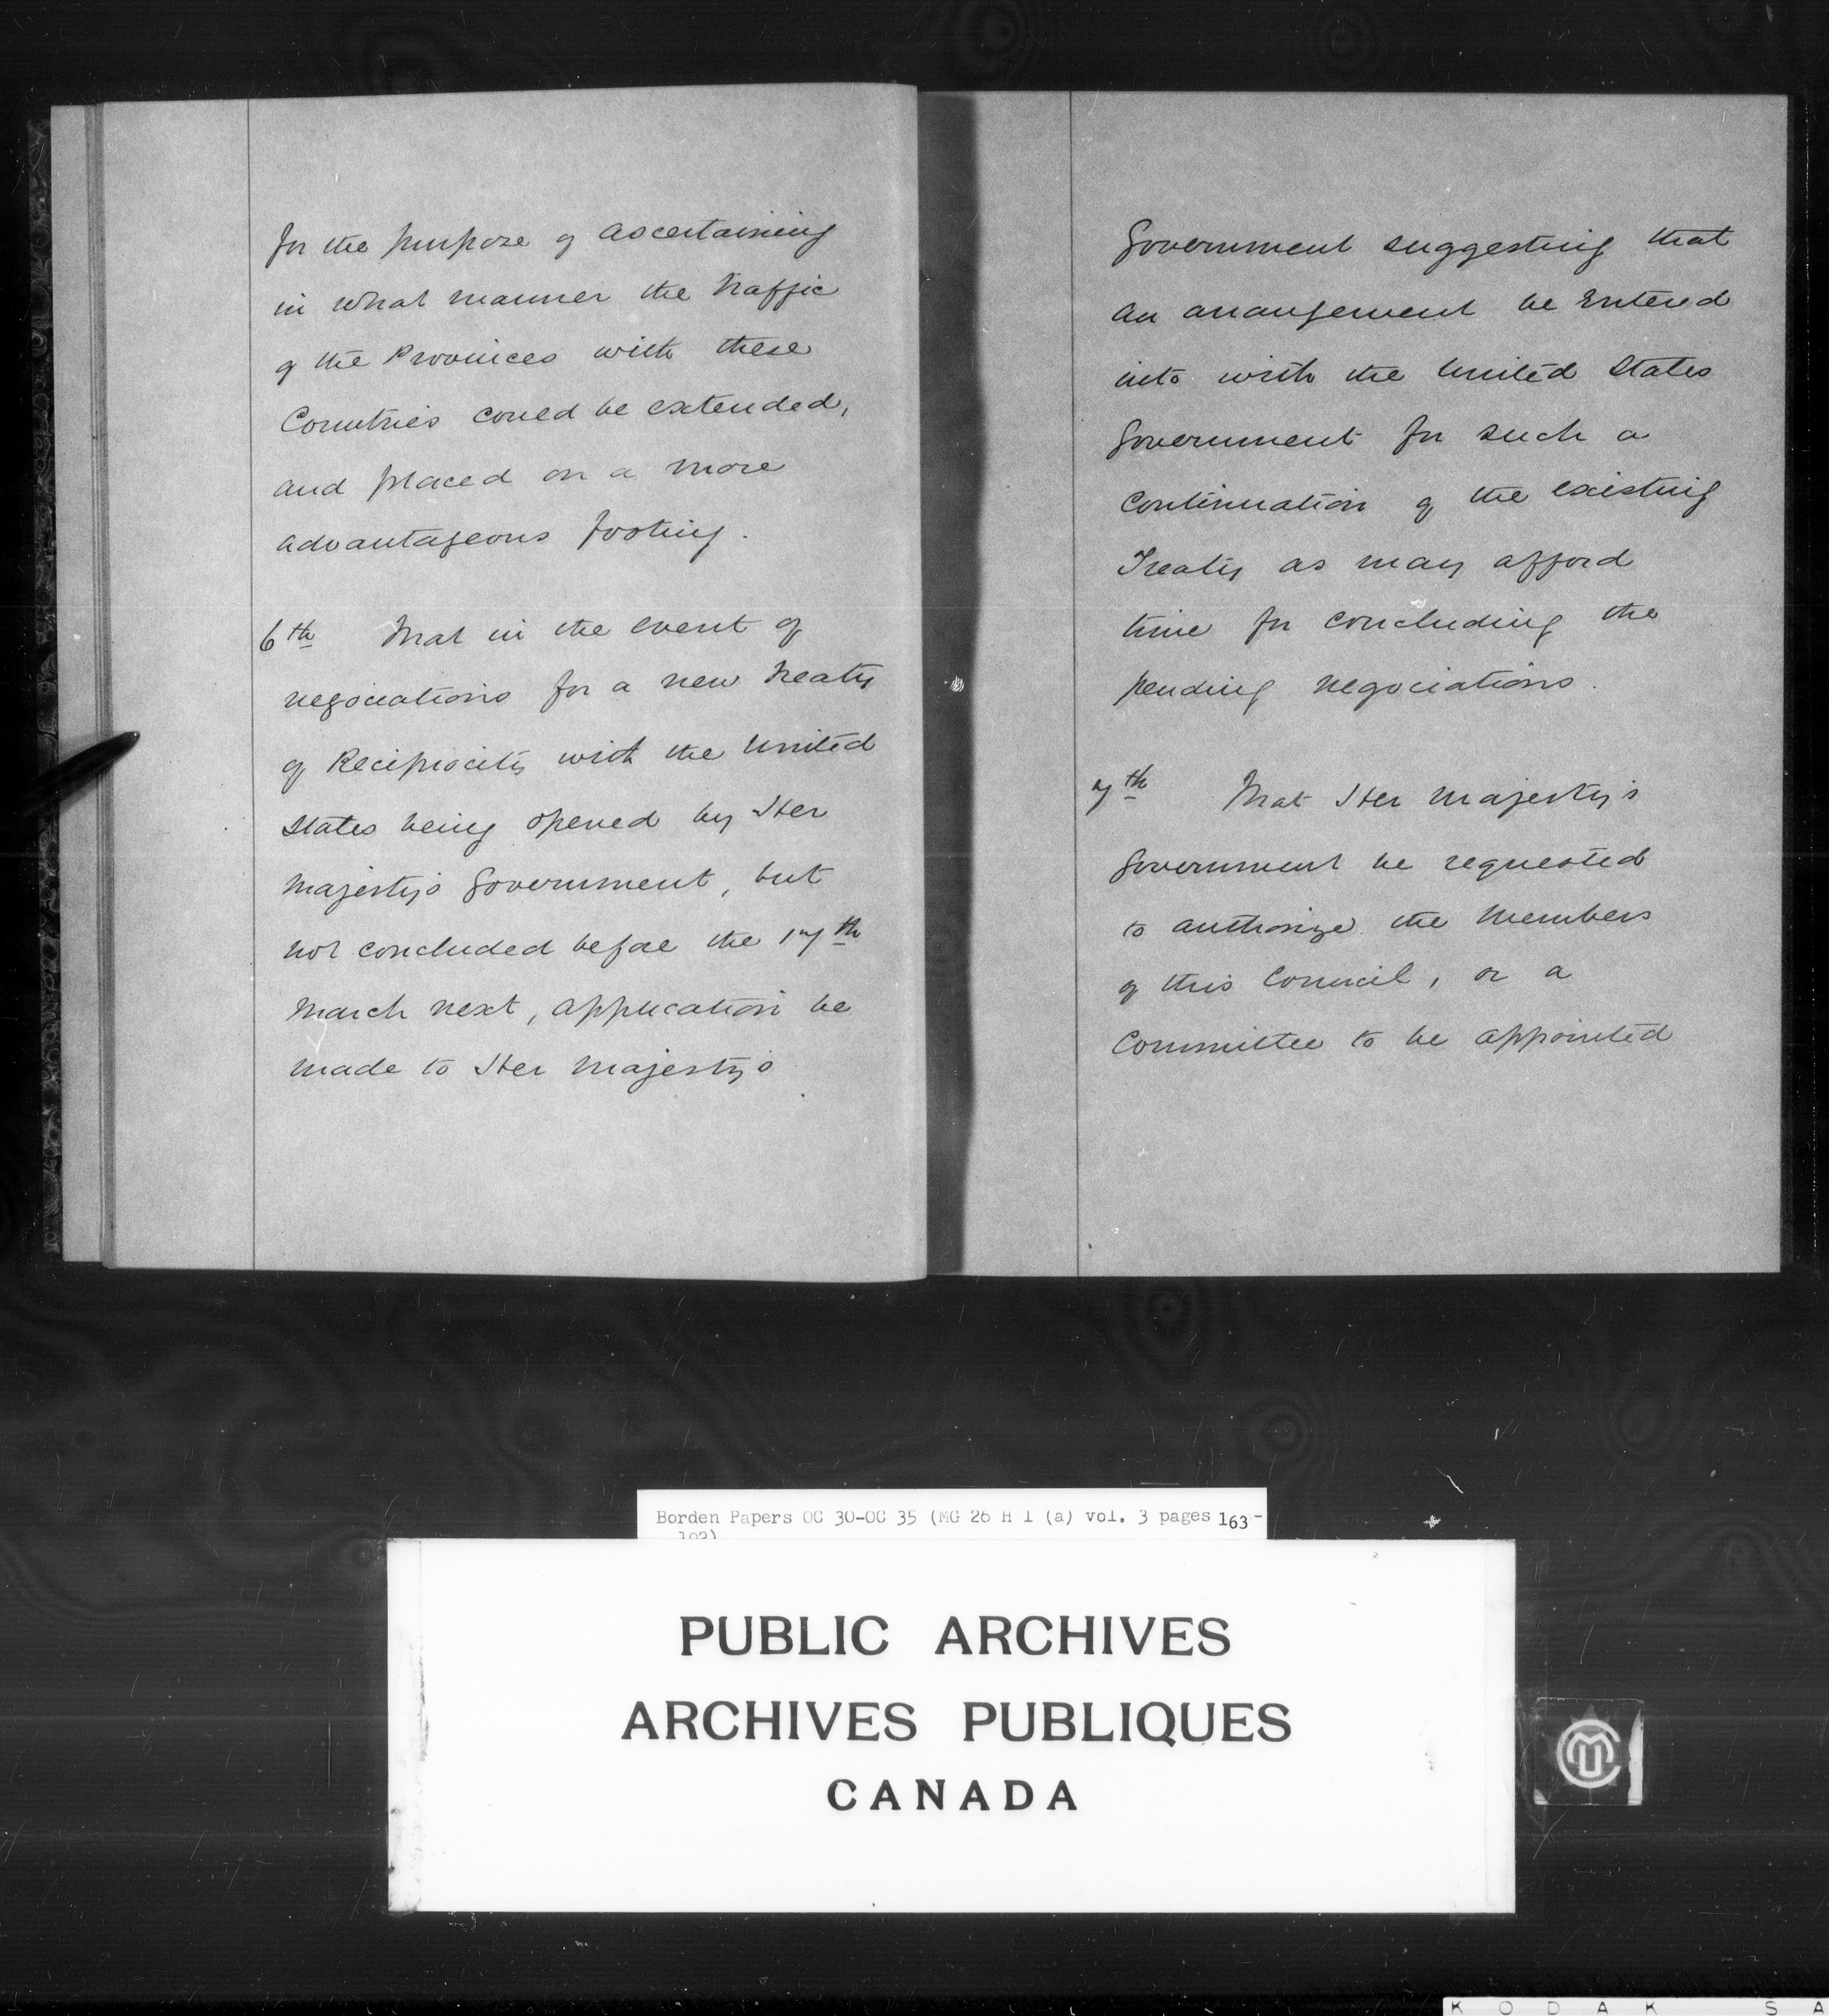 for the purpose of ascertaining
in what manner the traffic
of the Provinces with these
Countries could be extended,
and placed on a more
advantageous footing.
6th That in the event of
negociations for a new treaty
of Reciprocity with the United
States being opened by Her
Majesty's Government, but
not concluded before the 17th
March next, application be
made to Her Majesty's
Government suggesting that
an arrangement be entered
into with the United States
Government for such a
continuation of the existing
Treaty as may afford
time for concluding the
pending negociations.
7th That Her Majesty's
Government be requested
to authorize the Members
of this Council, or a
Committee to be appointed
Borden Papers OC 30-OC 35 (MG 26 H 1 (a) vol. 3 pages 163-
PUBLIC ARCHIVES
ARCHIVES PUBLIQUES
CANADA
KODAK SA